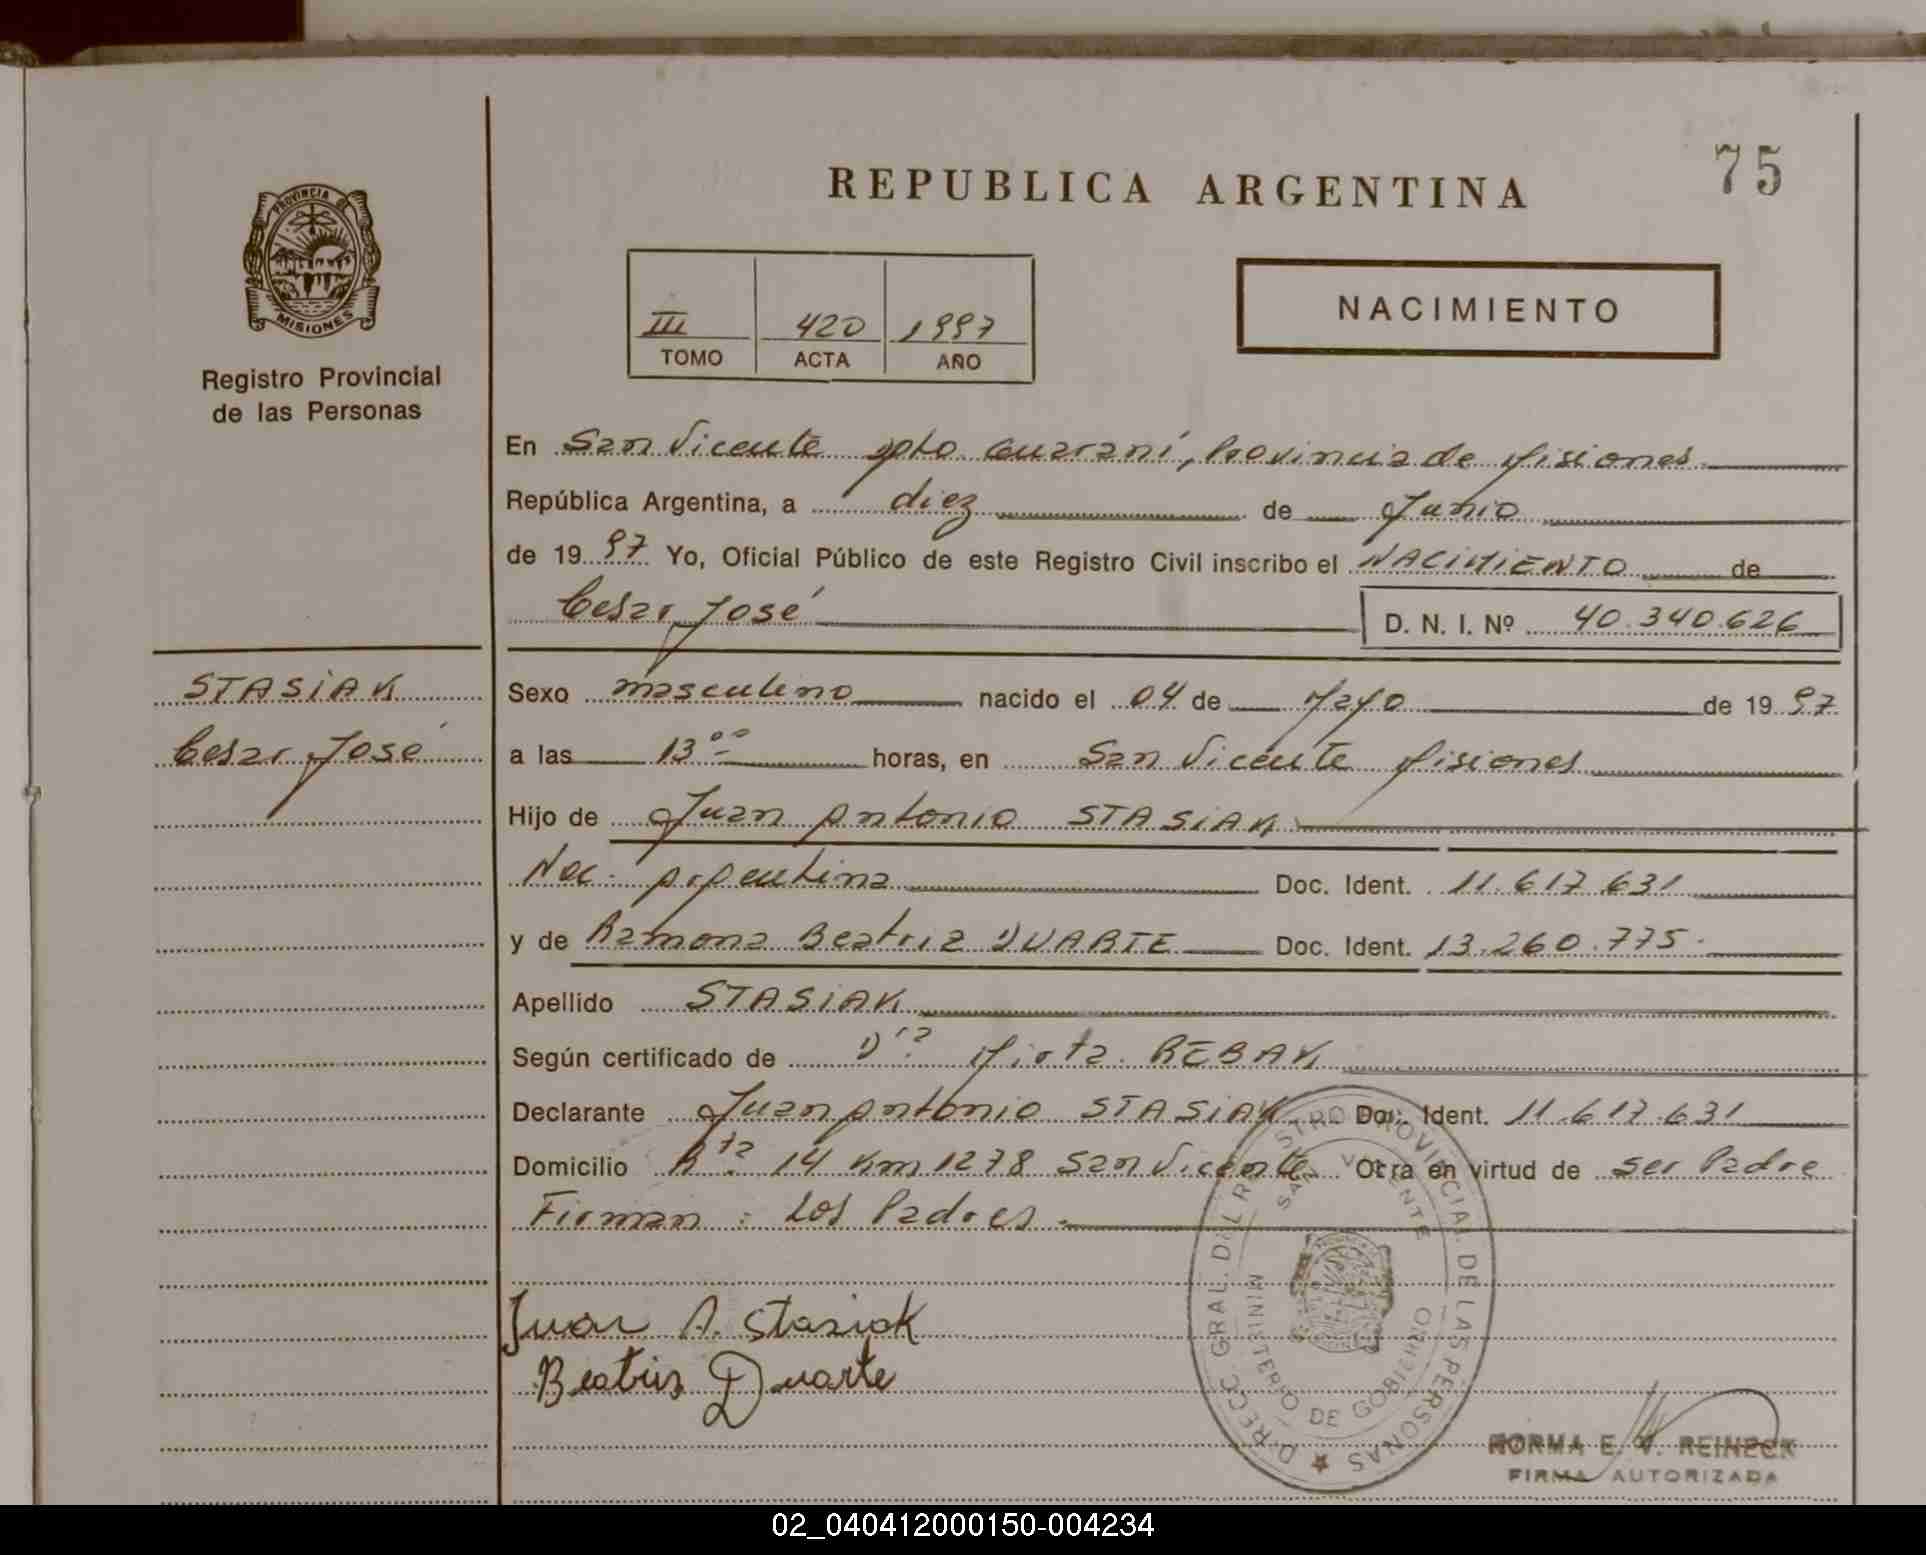 75
REPUBLICA ARGENTINA
PROVINCIA DE
MISIONES
Registro Provincial
de las Personas
III 420 1997
TOMO ACTA AÑO
NACIMIENTO
En San Vicente Dpto Guaraní, Provincia de Misiones
República Argentina, a diez de Junio
de 1997 Yo, Oficial Público de este Registro Civil inscribo el NACIMIENTO de
Cesar José D. N. I. Nº 40.340.626
STASIAK
Cesar José
Sexo masculino nacido el 04 de Mayo de 1997
a las 13 00 horas, en San Vicente Misiones
Hijo de Juan Antonio STASIAK
Nac. Argentina Doc. Ident. 11.617.631
y de Ramona Beatriz DUARTE Doc. Ident. 13.260.775.
Apellido STASIAK
Según certificado de Dra. Mirta REBAK
Declarante Juan Antonio STASIAK Doc. Ident. 11.617.631
Domicilio Rta. 14 Km 1278 San Vicente Obra en virtud de ser Padre
Firman: Los Padres.
Juan A. Stasiak
Beatriz Duarte
DIRECC. GRAL. DEL REGISTRO PROVINCIAL DE LAS PERSONAS
SAN VICENTE
MINISTERIO DE GOBIERNO
NORMA E. V. REINECK
FIRMA AUTORIZADA
02_040412000150-004234